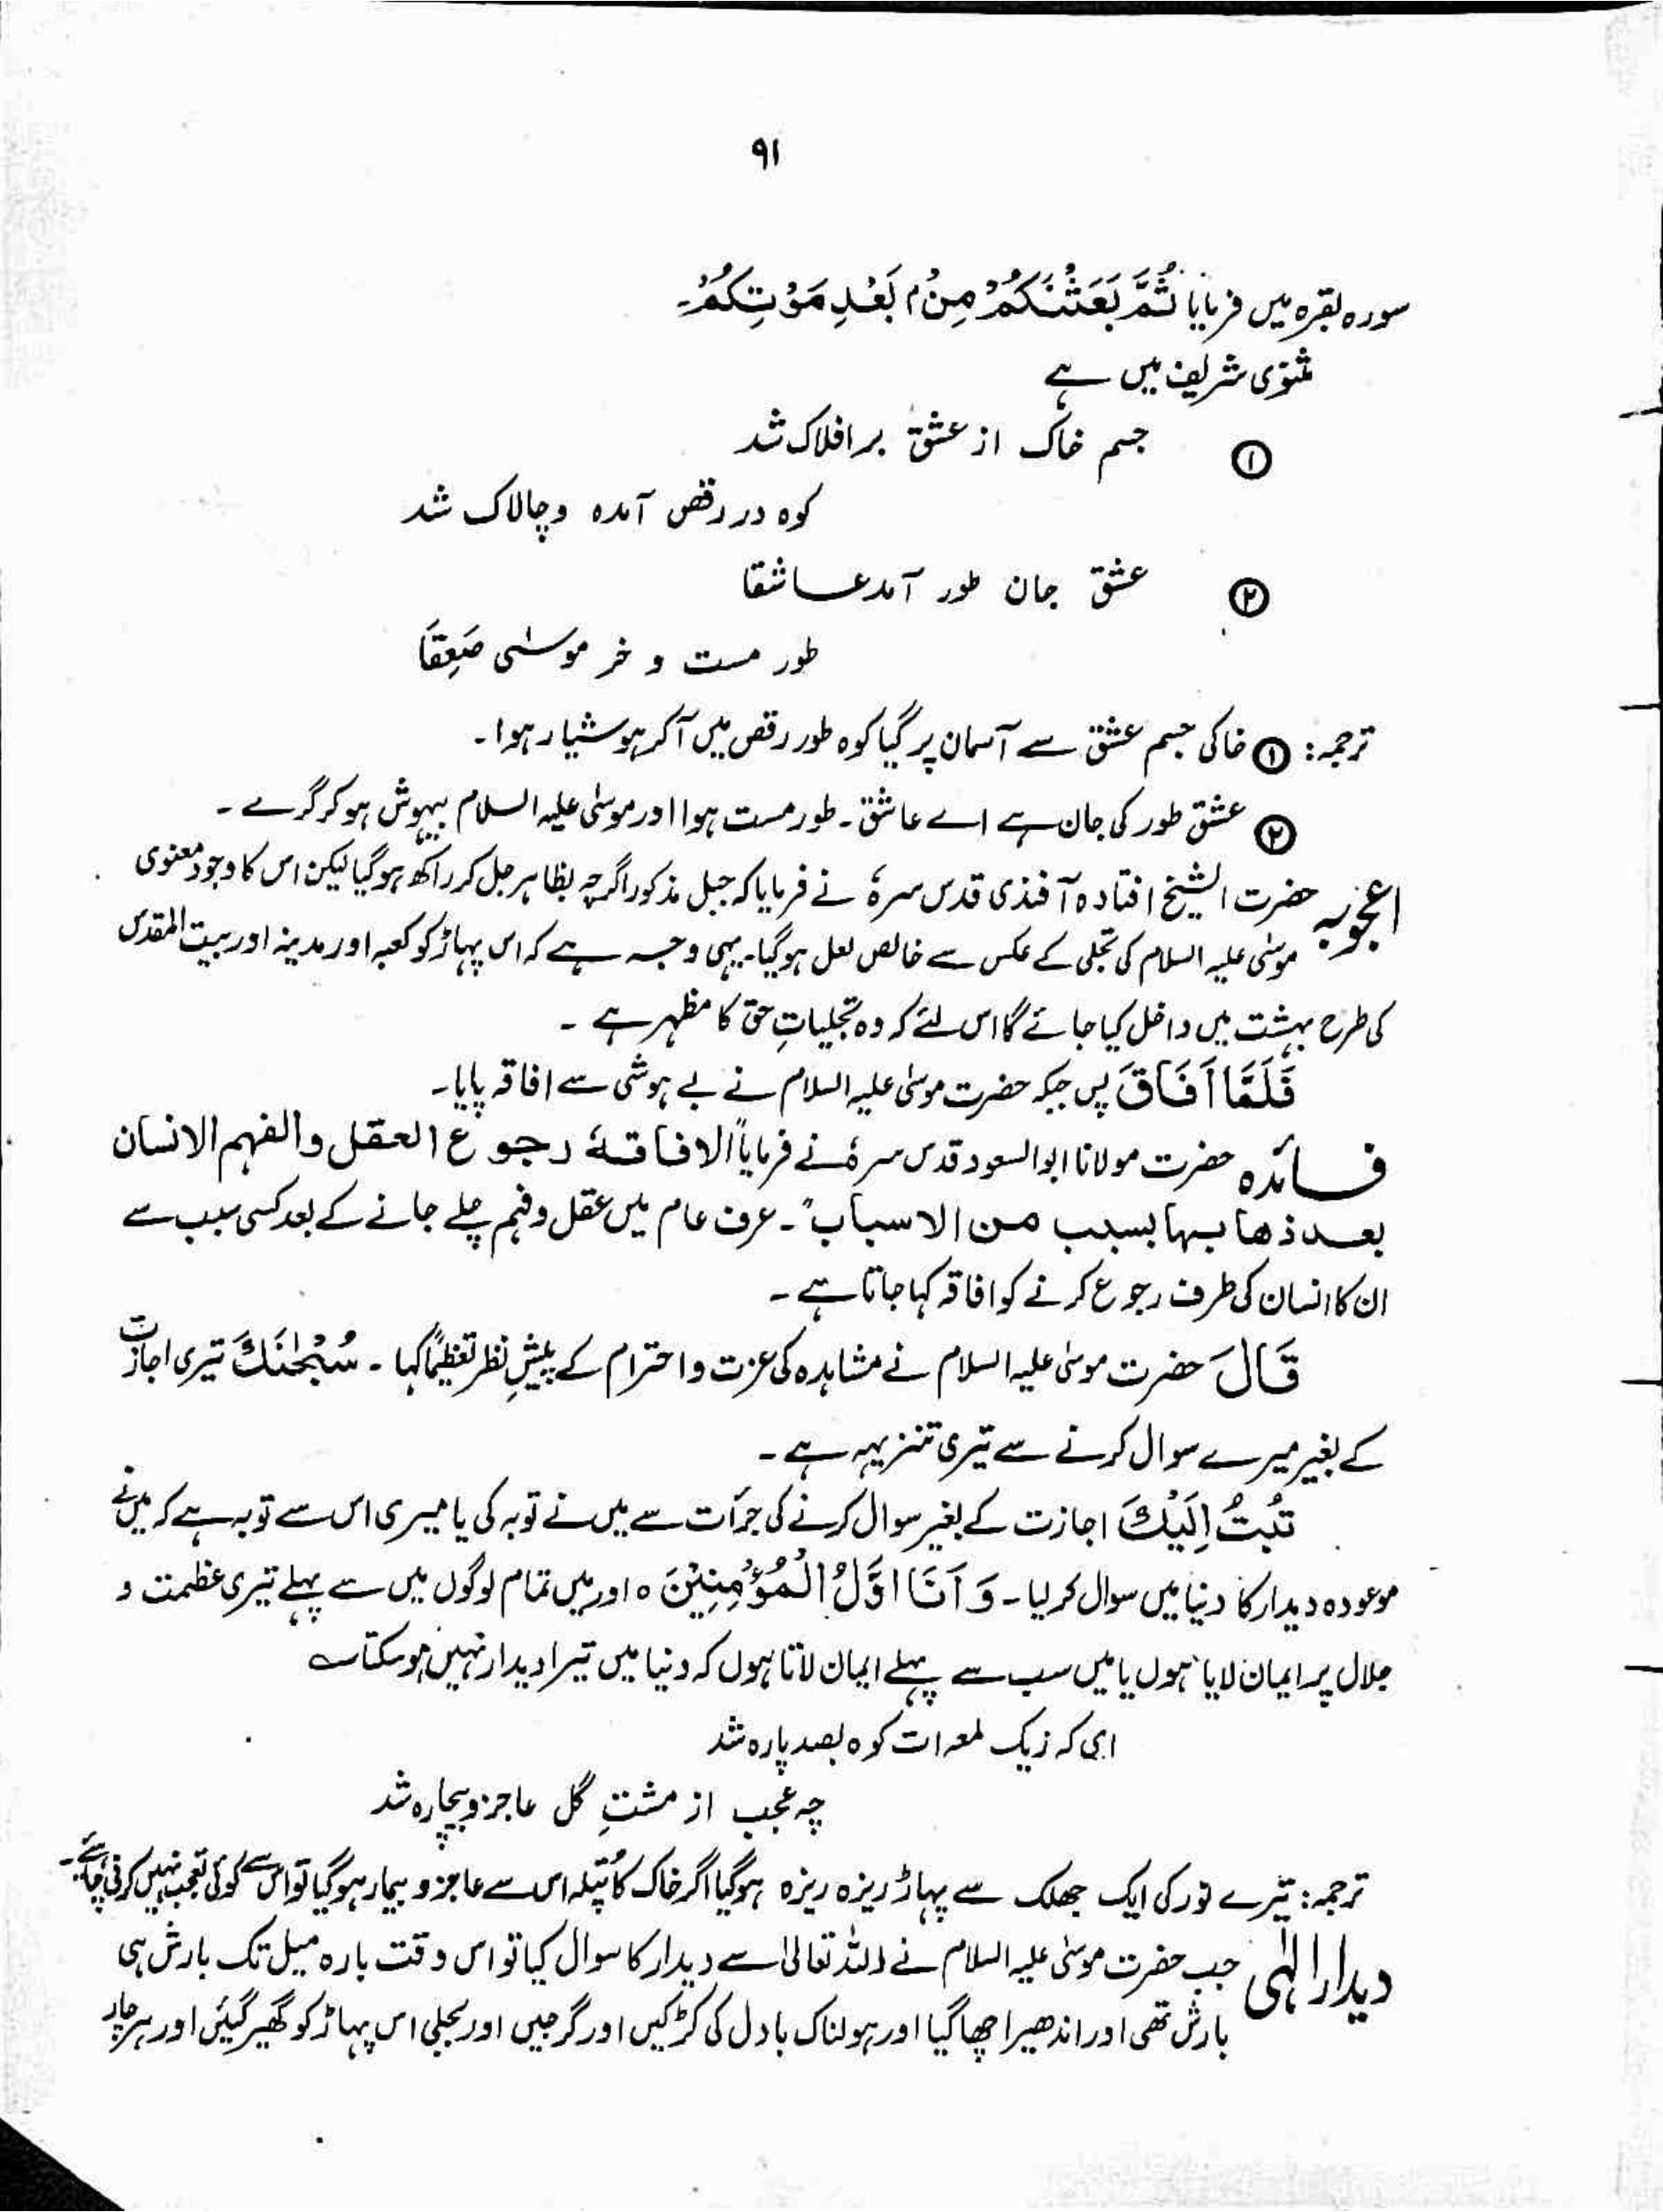 ۹۱
سورہ بقرہ میں فرمایا ثُمَّ بَعَثْنٰکُمْ مِنْۢ بَعْدِ مَوْتِکُمْ۔
مثنوی شریف میں ہے
① جسم خاک از عشق بر افلاک شد
کوہ در رقص آمدہ و چالاک شد
② عشق جان طور آمد عاشقا
طور مست و خر موسٰی صَعِقَا
ترجمہ: ① خاکی جسم عشق سے آسمان پر گیا کوہ طور رقص میں آکر ہوشیار ہوا۔
② عشق طور کی جان ہے اے عاشق۔ طور مست ہوا اور موسیٰ علیہ السلام بیہوش ہو کر گرے۔
اعجوبہ حضرت الشیخ افتادہ آفندی قدس سرہٗ نے فرمایا کہ جبل مذکور اگرچہ بظاہر جل کر راکھ ہوگیا لیکن اس کا وجود معنوی
موسیٰ علیہ السلام کی تجلی کے عکس سے خالص لعل ہوگیا۔ یہی وجہ ہے کہ اس پہاڑ کو کعبہ اور مدینہ اور بیت المقدس
کی طرح بہشت میں داخل کیا جائے گا اس لئے کہ وہ تجلیاتِ حق کا مظہر ہے ۔
فَلَمَّا اَفَاقَ پس جبکہ حضرت موسیٰ علیہ السلام نے بے ہوشی سے افاقہ پایا۔
فائدہ حضرت مولانا ابو السعود قدس سرہٗ نے فرمایا "الافاقۃ رجوع العقل والفہم الانسان
بعد ذھابہا بسبب من الاسباب"۔ عرف عام میں عقل و فہم چلے جانے کے بعد کسی سبب سے
ان کا انسان کی طرف رجوع کرنے کو افاقہ کہا جاتا ہے ۔
قَالَ حضرت موسیٰ علیہ السلام نے مشاہدہ کی عزت و احترام کے پیشِ نظر تعظیماً کہا ۔ سُبْحٰنَکَ تیری اجازت
کے بغیر میرے سوال کرنے سے تیری تنزیہہ ہے ۔
تُبْتُ اِلَیْکَ اجازت کے بغیر سوال کرنے کی جرأت سے میں نے توبہ کی یا میری اس سے توبہ ہے کہ میں نے
موعودہ دیدار کا دنیا میں سوال کر لیا ۔ وَ اَنَا اَوَّلُ الْمُؤْمِنِیْنَ ہ اور میں تمام لوگوں میں سے پہلے تیری عظمت و
جلال پر ایمان لایا ہوں یا میں سب سے پہلے ایمان لاتا ہوں کہ دنیا میں تیرا دیدار نہیں ہو سکتا ؎
ای کہ زیک لمعہ ات کوہ بصد پارہ شد
چہ عجب از مشتِ گل عاجز و بیچارہ شد
ترجمہ: تیرے نور کی ایک جھلک سے پہاڑ ریزہ ریزہ ہوگیا اگر خاک کا پُتلہ اس سے عاجز و بیمار ہوگیا تو اس سے کوئی تعجب نہیں کرنی چاہئے۔
دیدار الٰہی جب حضرت موسیٰ علیہ السلام نے اللہ تعالیٰ سے دیدار کا سوال کیا تو اس وقت بارہ میل تک بارش ہی
بارش تھی اور اندھیرا چھا گیا اور ہولناک بادل کی کڑکیں اور گرجیں اور بجلی اس پہاڑ کو گھیر گئیں اور ہر چار